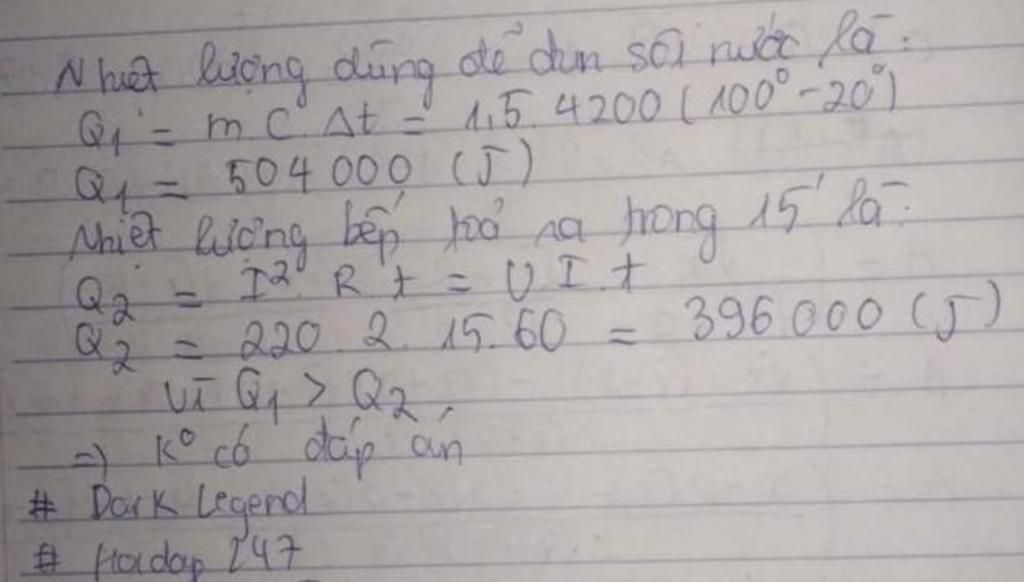 Nhiệt lượng dùng để đun sôi nước là:
Q₁ = m C. Δt = 1,5. 4200 (100° - 20°)
Q₁ = 504 000 (J)
Nhiệt lượng bếp toả ra trong 15' là:
Q₂ = I² R t = U I. t
Q₂ = 220. 2. 15. 60 = 396 000 (J)
Vì Q₁ > Q₂
=> K° có đáp án
# Dark Legend
# Hoidap 247